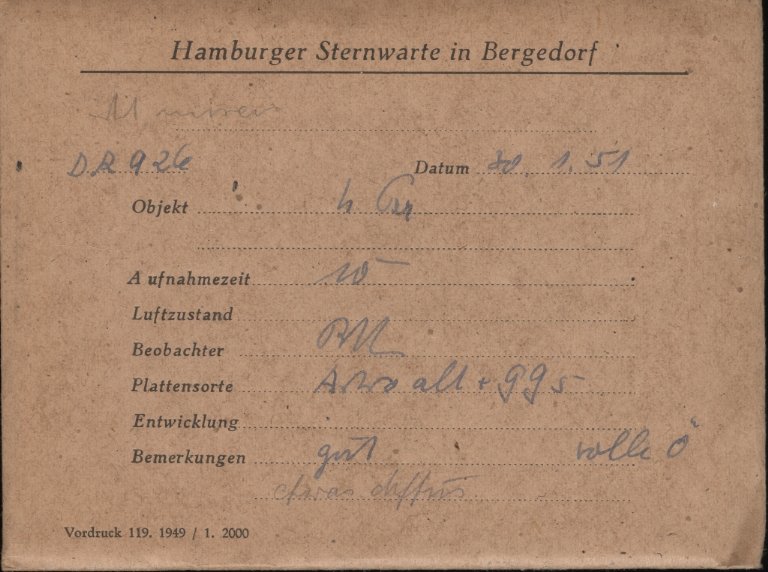 Hamburger Sternwarte in Bergedorf
DR 926 Datum 30.1.51
Objekt h
Aufnahmezeit 10
Luftzustand
Beobachter
Plattensorte Astro alt + GG5
Entwicklung
Bemerkungen gut volle Ö
etwas diffus
Vordruck 119. 1949 / 1. 2000